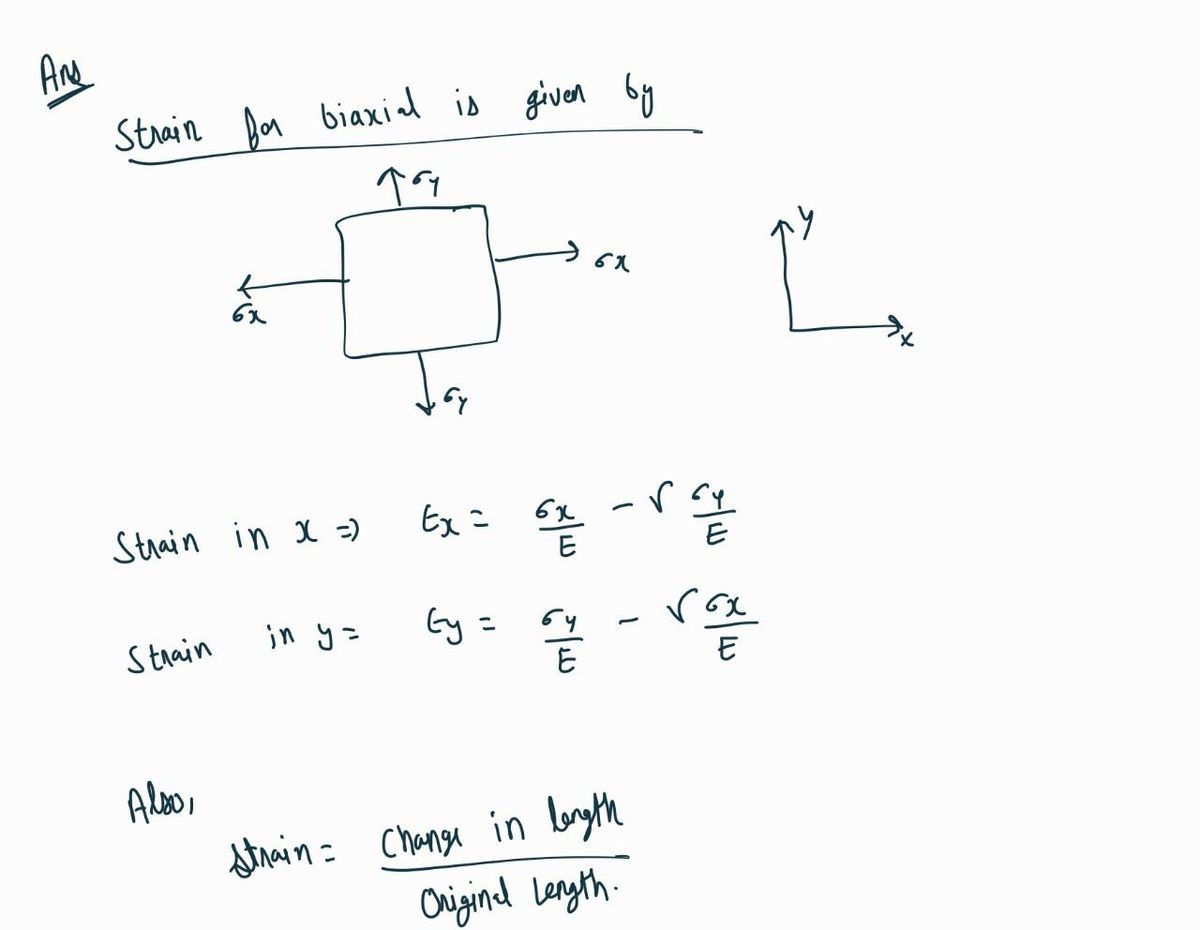 Ans
Strain for biaxial is given by
σy
σx
σx
σy
y
x
Strain in x ⇒ Ex = σx/E - √ σy/E
Strain in y = Ey = σy/E - √ σx/E
Also,
Strain = Change in length
Original Length.